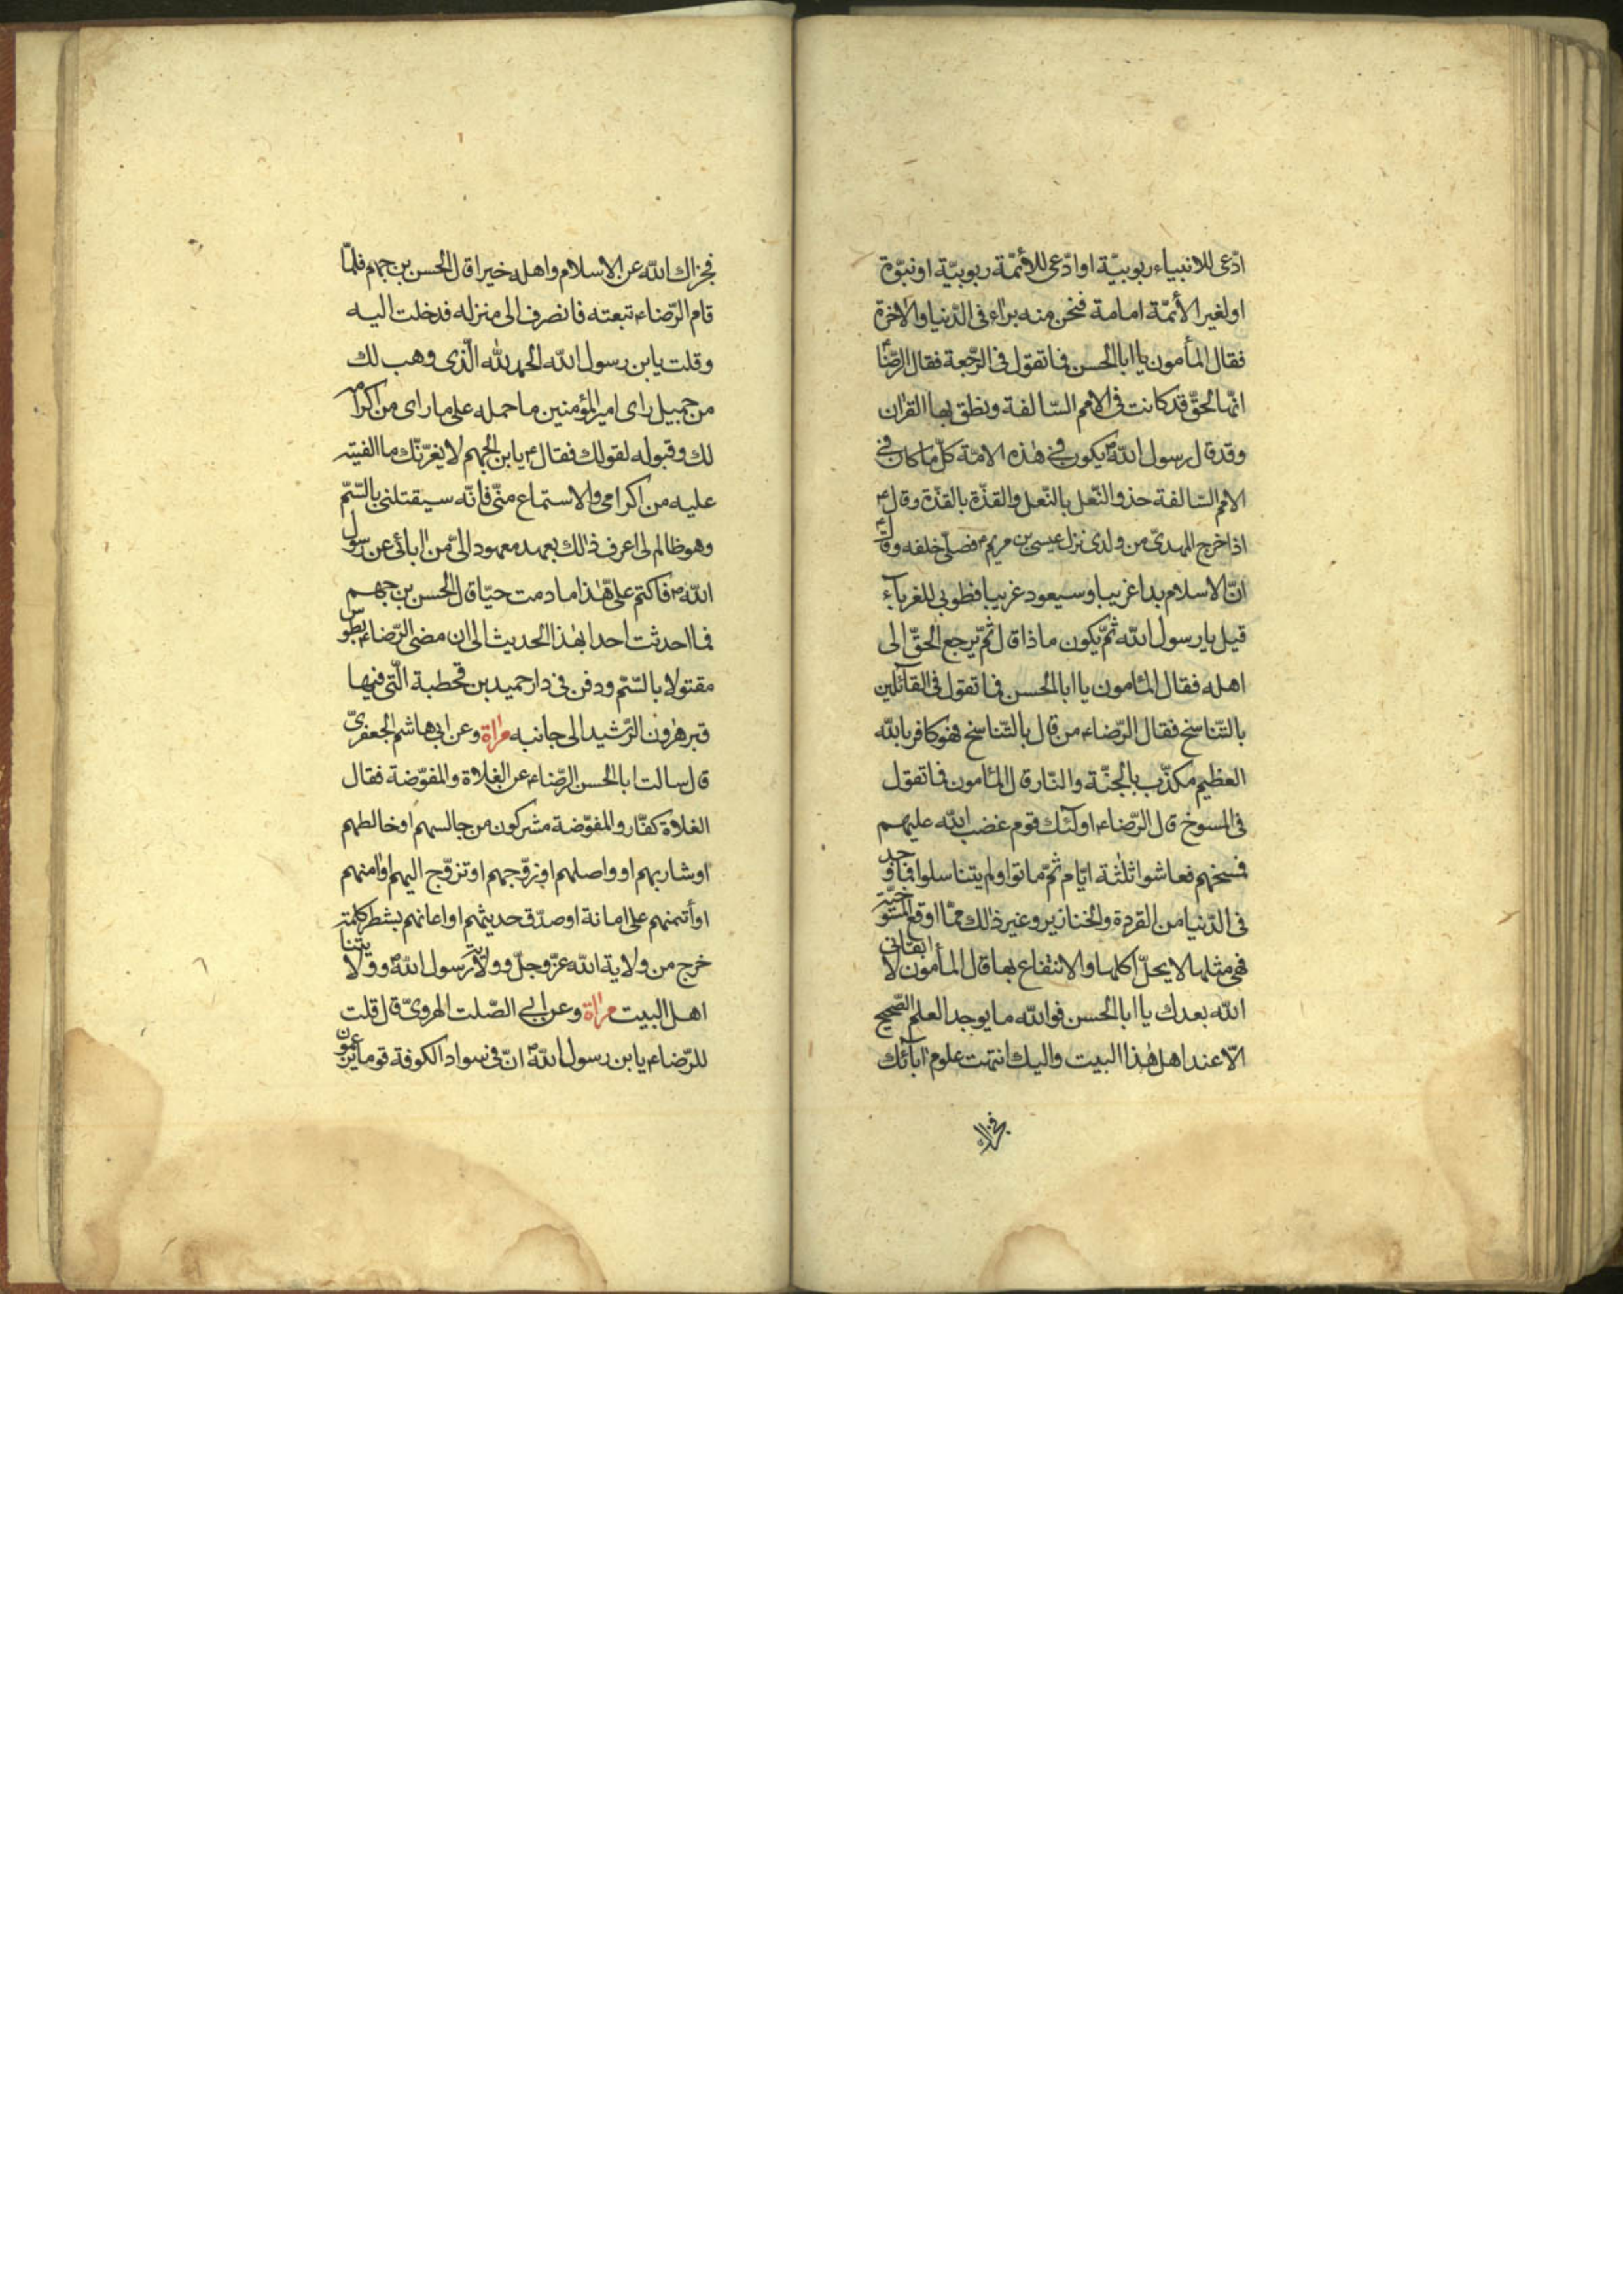 ادّعى للانبياء ربوبيّة او ادّعى للأئمّة ربوبيّة او نبوّة
او لغير الأئمّة امامة فنحن منه براء فى الدّنيا والاخرة
فقال المأمون يا ابا الحسن فما تقول فى الرّجعة فقال الرّضاء
انّها الحقّ قد كانت فى الامم السّالفة ونطق بها القران
وقد قال رسول اللّٰه ص يكون فى هٰذه الامّة كلّ ما كان فى
الامم السّالفة حذو النّعل بالنّعل والقذّة بالقذّة وقال ص
اذا خرج المهدىّ من ولدى نزل عيسى بن مريم ع فصلّى خلفه وقال ع
انّ الاسلام بدا غريبا وسيعود غريبا فطوبى للغربآء
قيل يا رسول اللّٰه ثمّ يكون ماذا قال ثمّ يرجع الحقّ الى
اهله فقال المأمون يا ابا الحسن فما تقول فى القآئلين
بالتّناسخ فقال الرّضاء من قال بالتّناسخ فهو كافر باللّٰه
العظيم مكذّب بالجنّة والنّار قال المأمون فما تقول
فى المسوخ قال الرّضاء اولٓئك قوم غضب اللّٰه عليهم
فمسخهم فعاشوا ثلٰثة ايّام ثمّ ماتوا ولم يتناسلوا فما وجد
فى الدّنيا من القردة والخنازير وغير ذٰلك ممّا اوقع المسوخيّة
فهى مثلها لا يحلّ اكلها والانتفاع بها قال المأمون لا ابقانى
اللّٰه بعدك يا ابا الحسن فواللّٰه ما يوجد العلم الصّحيح
الّا عند اهل هٰذا البيت واليك انتهت علوم اٰبآئك
فجزاك
فجزاك اللّٰه عن الاسلام واهله خيرا قال الحسن بن جهم فلمّا
قام الرّضاء تبعته فانصرف الى منزله فدخلت اليه
وقلت يا بن رسول اللّٰه الحمد للّٰه الّذى وهب لك
من جميل راى امير المؤمنين ما حمله على ما راى من اكرامه
لك وقبوله لقولك فقال ع يا بن الجهم لا يغرّنّك ما الفيته
عليه من اكرامى والاستماع منّى فانّه سيقتلنى بالسّمّ
وهو ظالم لى اعرف ذٰلك بعهد معهود الىّ من اٰبائى عن رسول
اللّٰه ص فاكتم علىّ هٰذا ما دمت حيّا قال الحسن بن جهم
فما احدثت احدا بهٰذا الحديث الى ان مضى الرّضاء بطوس
مقتولا بالسّمّ ودفن فى دار حميد بن قحطبة الّتى فيها
قبر هٰرون الرّشيد الى جانبه مراٰة وعن ابى هاشم الجعفرىّ
قال سالت ابا الحسن الرّضاء عن الغلاة والمفوّضة فقال
الغلاة كفّار والمفوّضة مشركون من جالسهم او خالطهم
او شاربهم او واصلهم او زوّجهم او تزوّج اليهم او امنهم
او أتمنهم على امانة او صدّق حديثهم او اعانهم بشطر كلمة
خرج من ولاية اللّٰه عزّ وجلّ وولاية رسول اللّٰه ص وولايتنا
اهل البيت مراٰة وعن ابى الصّلت الهروىّ قال قلت
للرّضاء يا بن رسول اللّٰه انّ فى سواد الكوفة قوما يزعمون